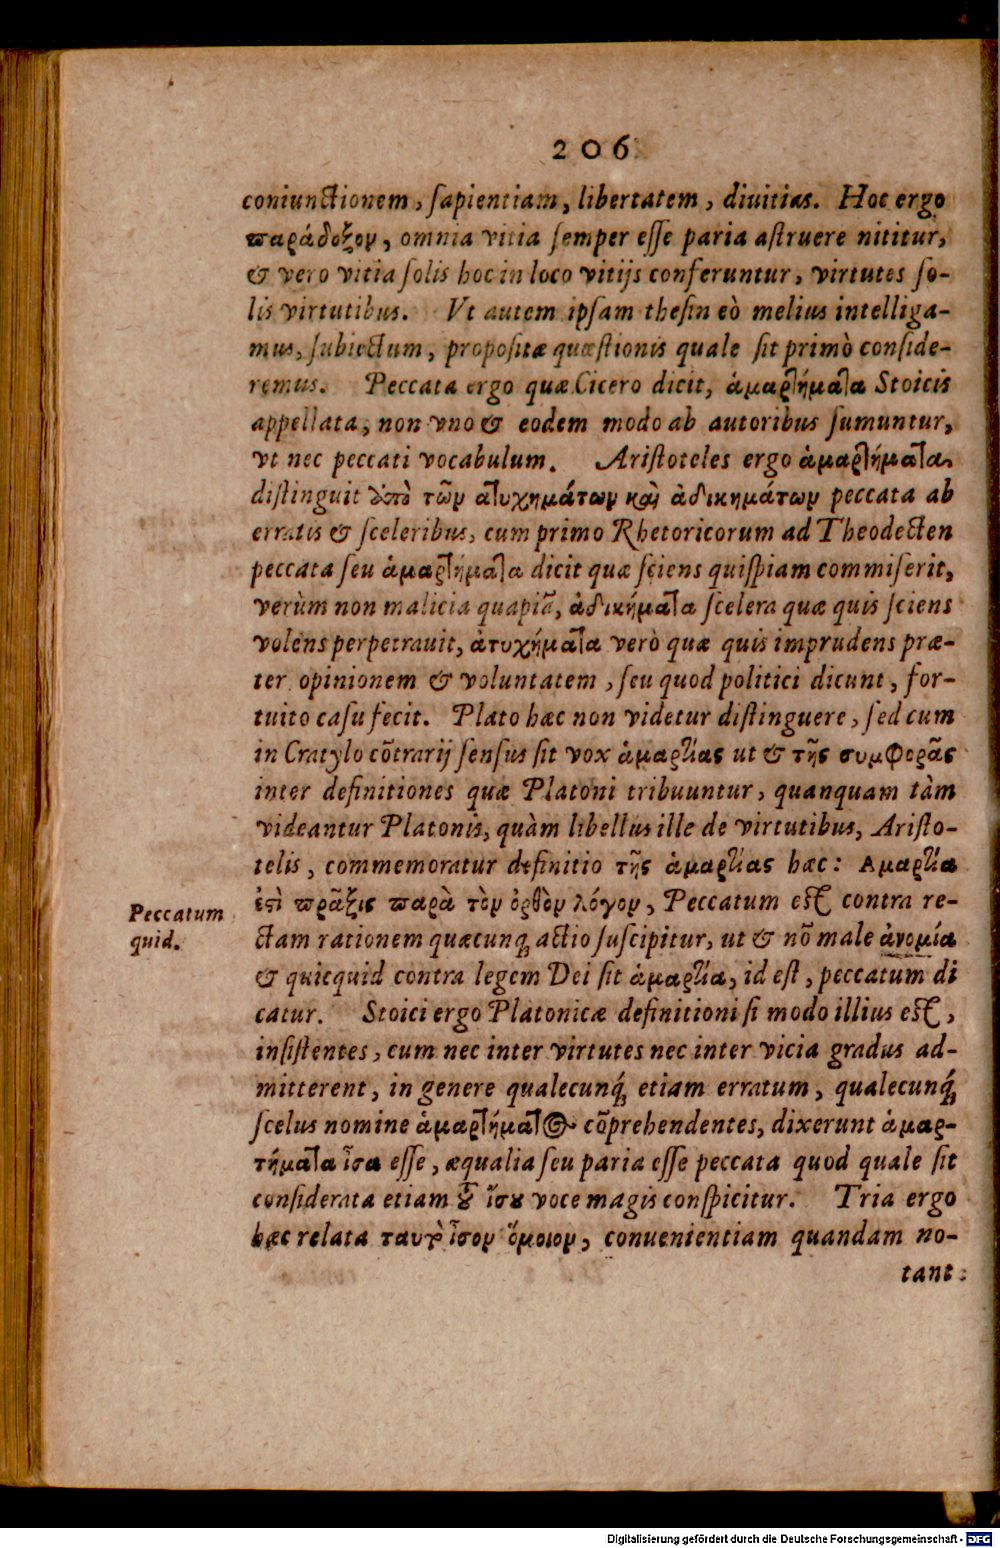 206
coniunctionem, ſapientiam, libertatem, diuitias. Hoc ergo
παράδοξον, omnia vitia ſemper eſſe paria aſtruere nititur,
& vero vitia ſolis hoc in loco vitijs conferuntur, virtutes ſo-
lis virtutibus. Vt autem ipſam theſin eò melius intelliga-
mus, ſubiectum, propoſitæ quæſtionis quale ſit primò conſide-
remus. Peccata ergo quæ Cicero dicit, ἁμαρτήματα Stoicis
appellata, non vno & eodem modo ab autoribus ſumuntur,
vt nec peccati vocabulum. Ariſtoteles ergo ἁμαρτήματα
diſtinguit ὑπὸ τῶν ατυχημάτων καὶ ἀδικημάτων peccata ab
erratis & ſceleribus, cum primo Rhetoricorum ad Theodecten
peccata ſeu ἁμαρτήματα dicit quæ ſciens quiſpiam commiſerit,
verùm non malicia quapiã, ἀδικήματα ſcelera quæ quis ſciens
volens perpetrauit, ἀτυχήματα verò quæ quis imprudens præ-
ter opinionem & voluntatem, ſeu quod politici dicunt, for-
tuito caſu fecit. Plato hæc non videtur diſtinguere, ſed cum
in Cratylo cõtrarij ſenſus ſit vox ἁμαρτίας ut & τῆς συμφορᾶς
inter definitiones quæ Platoni tribuuntur, quanquam tàm
videantur Platonis, quàm libellus ille de virtutibus, Ariſto-
telis, commemoratur definitio τῆς ἁμαρτίας hæc: Αμαρτία
ἐςὶ πρᾶξις παρὰ τὸν ὀρθὸν λόγον, Peccatum eſt contra re-
Peccatum
quid.
ctam rationem quæcunq; actio ſuſcipitur, ut & nõ male ἀνομία
& quicquid contra legem Dei ſit ἁμαρτία, id eſt, peccatum di
catur. Stoici ergo Platonicæ definitioni ſi modo illius eſt,
inſiſtentes, cum nec inter virtutes nec inter vicia gradus ad-
mitterent, in genere qualecunq́; etiam erratum, qualecunq́;
ſcelus nomine ἁμαρτήματος cõprehendentes, dixerunt ἁμαρ-
τήματα ἶσα eſſe, æqualia ſeu paria eſſe peccata quod quale ſit
conſiderata etiam τοῦ ἴσου voce magis conſpicitur. Tria ergo
hæc relata ταυτὸ ἶσον ὅμοιον, conuenientiam quandam no-
tant:
Digitalisierung gefördert durch die Deutsche Forschungsgemeinschaft - DFG